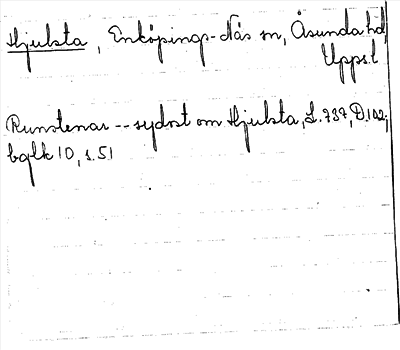 Hjulsta, Enköpings-Näs sn, Åsunda hd,
Upps.l
Runstenar -- sydost om Hjulsta, L. 737, D. 142;
bglk 10, s. 51